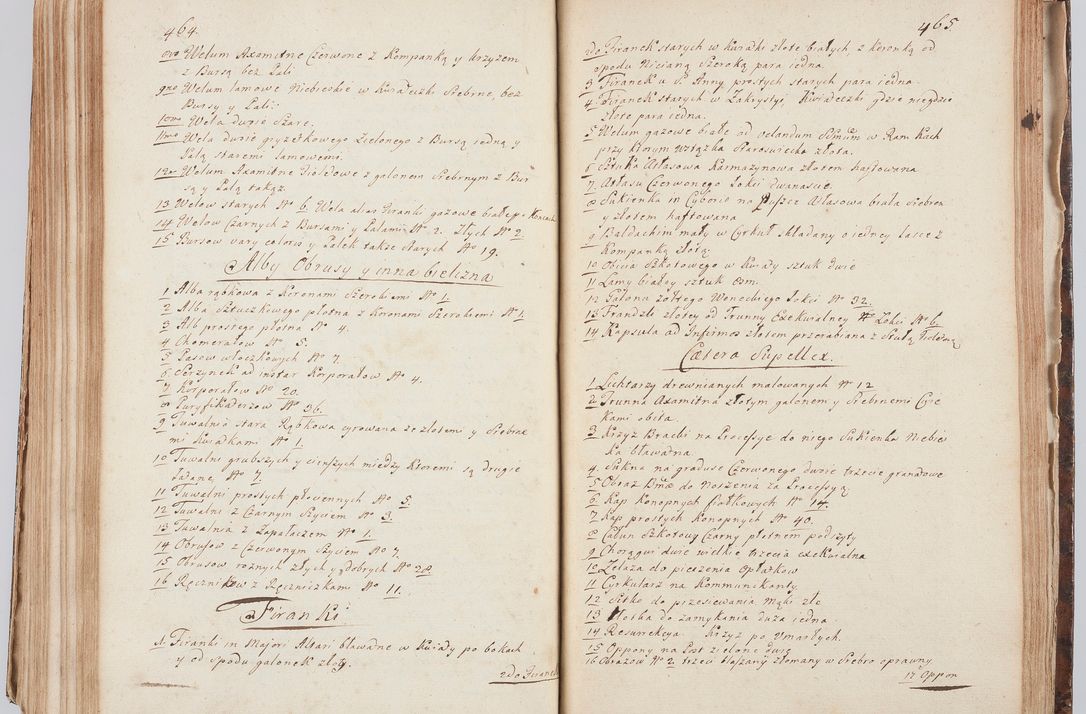 464.
8vo Welum Axamitne Czerwone z Kompanką y Krzyzem
z Bursą bez Pali
9no Welum lamowe Niebieskie w Kwiateczki Srebrne, bez
Bursy y Pali
10mo Wela dwoie Szare.
11mo Wela dwoie gryzetkowego Zielonego z Bursą iedną y
Palą staremi lamowemi.
12o Welum Axamitne Fioletowe z galonem Srebrnym z Bur
są y Palą takąż
13 Welow starych No 6. Wela alias Firanki gazowe białe
14 Welow Czarnych z Bursami y Palami No 2. Złych No 2
15 Bursow vary coloris y Palek takze starych No 19.
Alby Obrusy y inna bielizna
1 Alba rąbkowa z Koronami Szerokiemi No 1.
2 Alba Sztuczkowego płotna z Koronami Szerokiemi No 1.
3 Alb prostego płotna No 4.
4 Humerałow No 5.
5 Pasow włoczkowych No 7
6 Serzynek ad instar Korporałow No 4.
7 Korporałow No 20.
8 Puryfikaterzow No 36.
9 Tuwalnia stara Rąbkowa cyrowana ze złotemi y Srebrne
mi Kwiatkami No 1.
10 Tuwalni grubszych y cienszych miedzy Ktoremi są drugie
No 7.
11 Tuwalni prostych płociennych No 5
12 Tuwalni z Czarnym Szyciem No 3.
13 Tuwalnia z Zapałaczem No 1.
14 Obrusow z Czerwonym Szyciem No 7
15 Obrusow roznych złych y dobrych No 28
16 Ręcznikow z Ręczniczkami No 11.
Firanki
1. Firanki in Majori Altari bławatne w Kwiaty po bokach
y od spodu galonek złoty.
2do Firanek
465.
2do Firanek starych w Kwiatki złote białych z Koronką od
spodu Nicianą Szeroką para iedna.
3 Firanek u S. Anny prostych starych para iedna.
4. Firanek starych w Zakrystyi, Kwiateczki gdzie niegdzie
złote para iedna.
5 Welum gazowe białe od velandum SSmum w Ramkach
przy Ktorym wstązka Staroswiecka złota.
6 Sztuka Atłasowa Karmazynowa złotem haftowana
7. Atłasu Czerwonego Łokci dwanascie.
8 Sukienka in Cyborio na Puszce Atłasowa biała Srebrem
y złotem haftowana
9 Baldachim mały w Cyrkuł składany o iedney Lasce z
Kompanką złotą
10 Obicia Szkotowego w Kwiaty sztuk dwie
11 Lamy białey sztuk 8m.
12 Galonu żołtego Weneckiego Łokci No 32.
13 Frandzle złotey od Trunny Exekwialney No Łokci No 6.
14 Kapsula ad Infirmos złotem przerabiana z Stułą Fioletową
Cætera Supellex.
1 Lichtarzy drewnianych malowanych No 12
2 Trunna Axamitna złotym galonem y Srebrnemi Cwie
kami obita.
3 Krzyz Bracki na Processye do niego Sukienka Niebies
ka bławatna
4. Sukna na graduse Czerwonego dwoie trzecie granatowe
5 Obraz BMæ do noszenia za Processyą
6 Kap Konopnych fiołkowych No 14.
7 Kap prostych Konopnych No 40.
8 Całun Szkotowy Czarny płotnem podszyty
9 Chorągwi dwie wielkie trzecia exekwialna
10 Zelaza do pieczenia Opłatkow
11 Cyrkularz na Kommunikanty
12 Sitko do przesiewania Mąki złe
13 Klotka do zamykania duża iedna
14 Resurrekcya Krzyz po umarłych.
15 Oppony na Post zielone dwie
16 Obrazow No 2 trzeci blaszany złomany w Srebro oprawny
17 Oppon